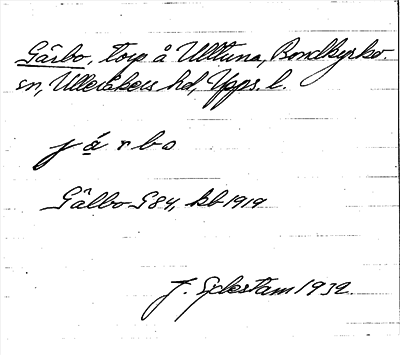 Gårbo, torp å Ulltuna, Bondkyrko.
sn, Ulleråkers hd, Upps. l.
j ä́ r b o
Gålbo G 84, kb 1919
J. Eplestam 1932.